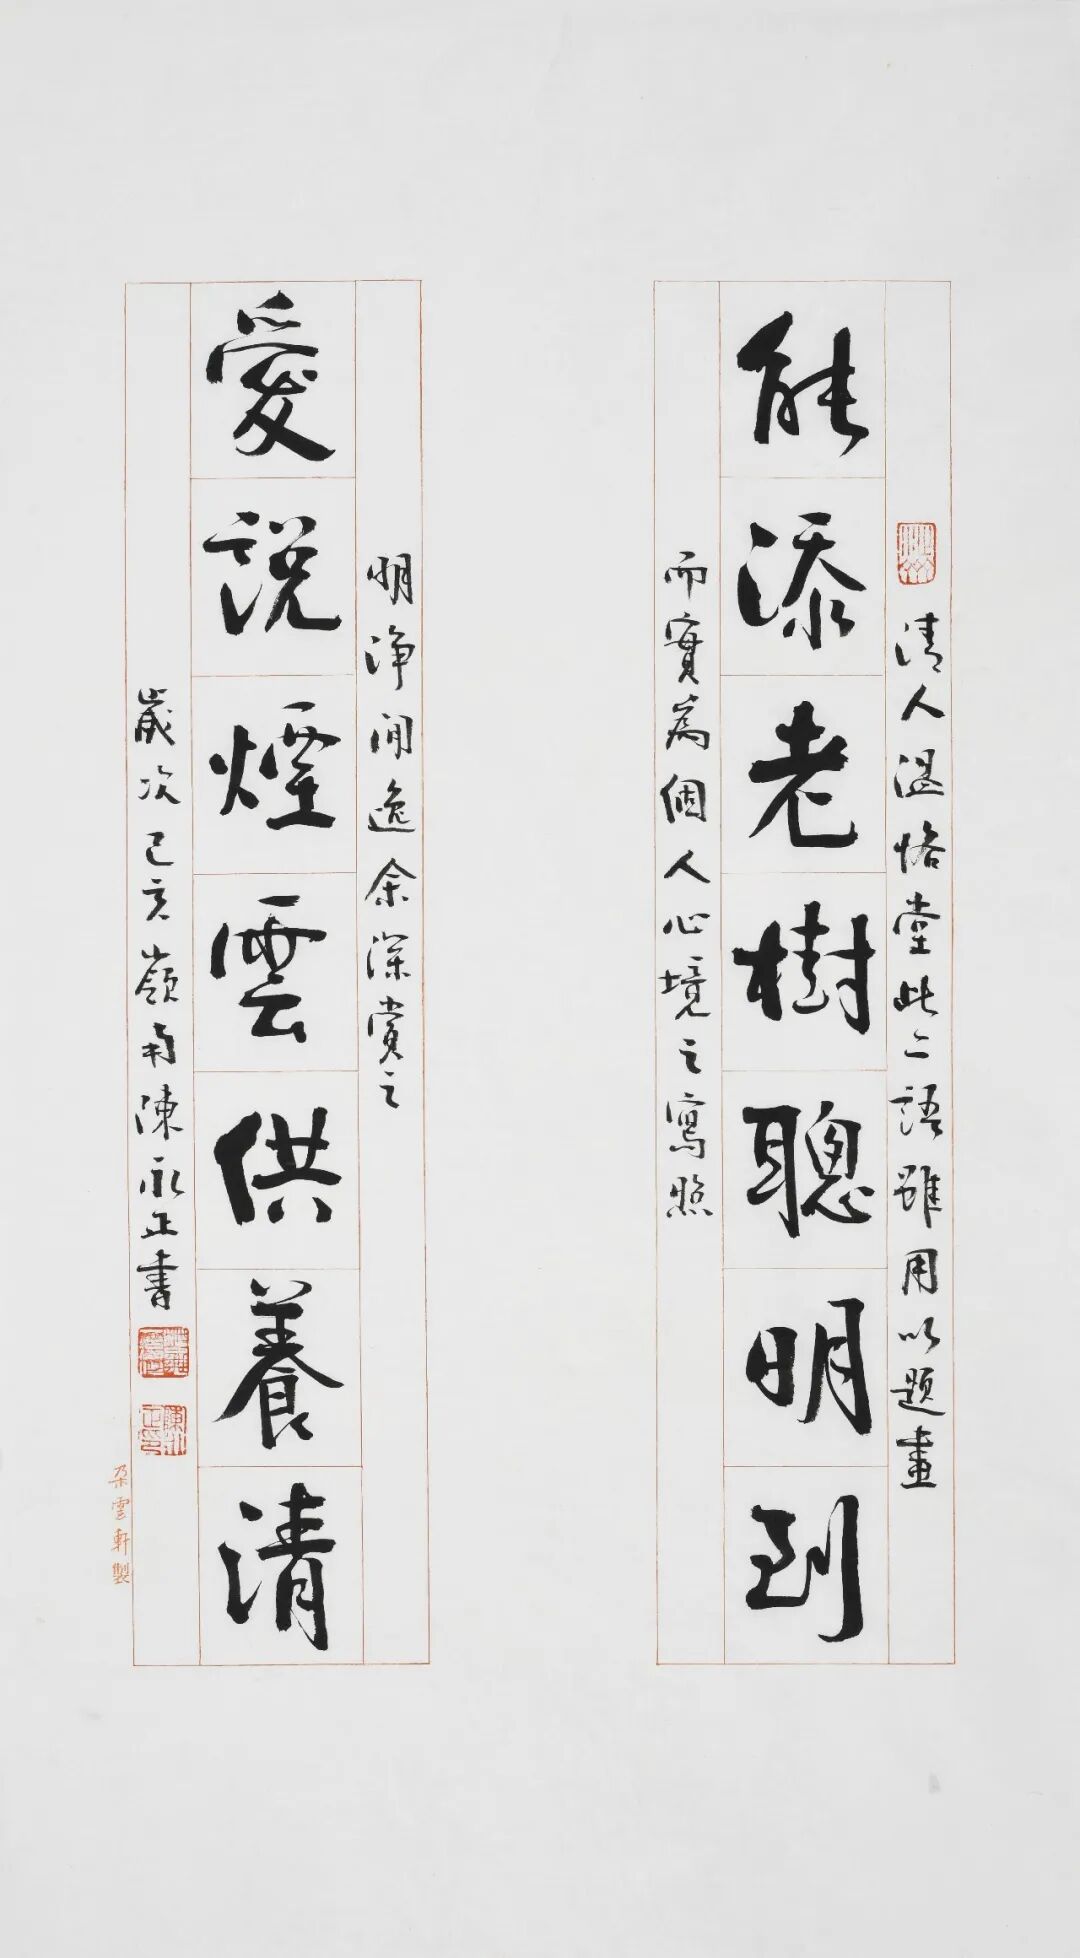 清人溫恪堂此二語雖用以題畫
能添老樹聰明到
而實為個人心境之寫照
明淨閒逸余深賞之
愛說煙雲供養清
歲次己亥嶺南陳永正書
朵雲軒製